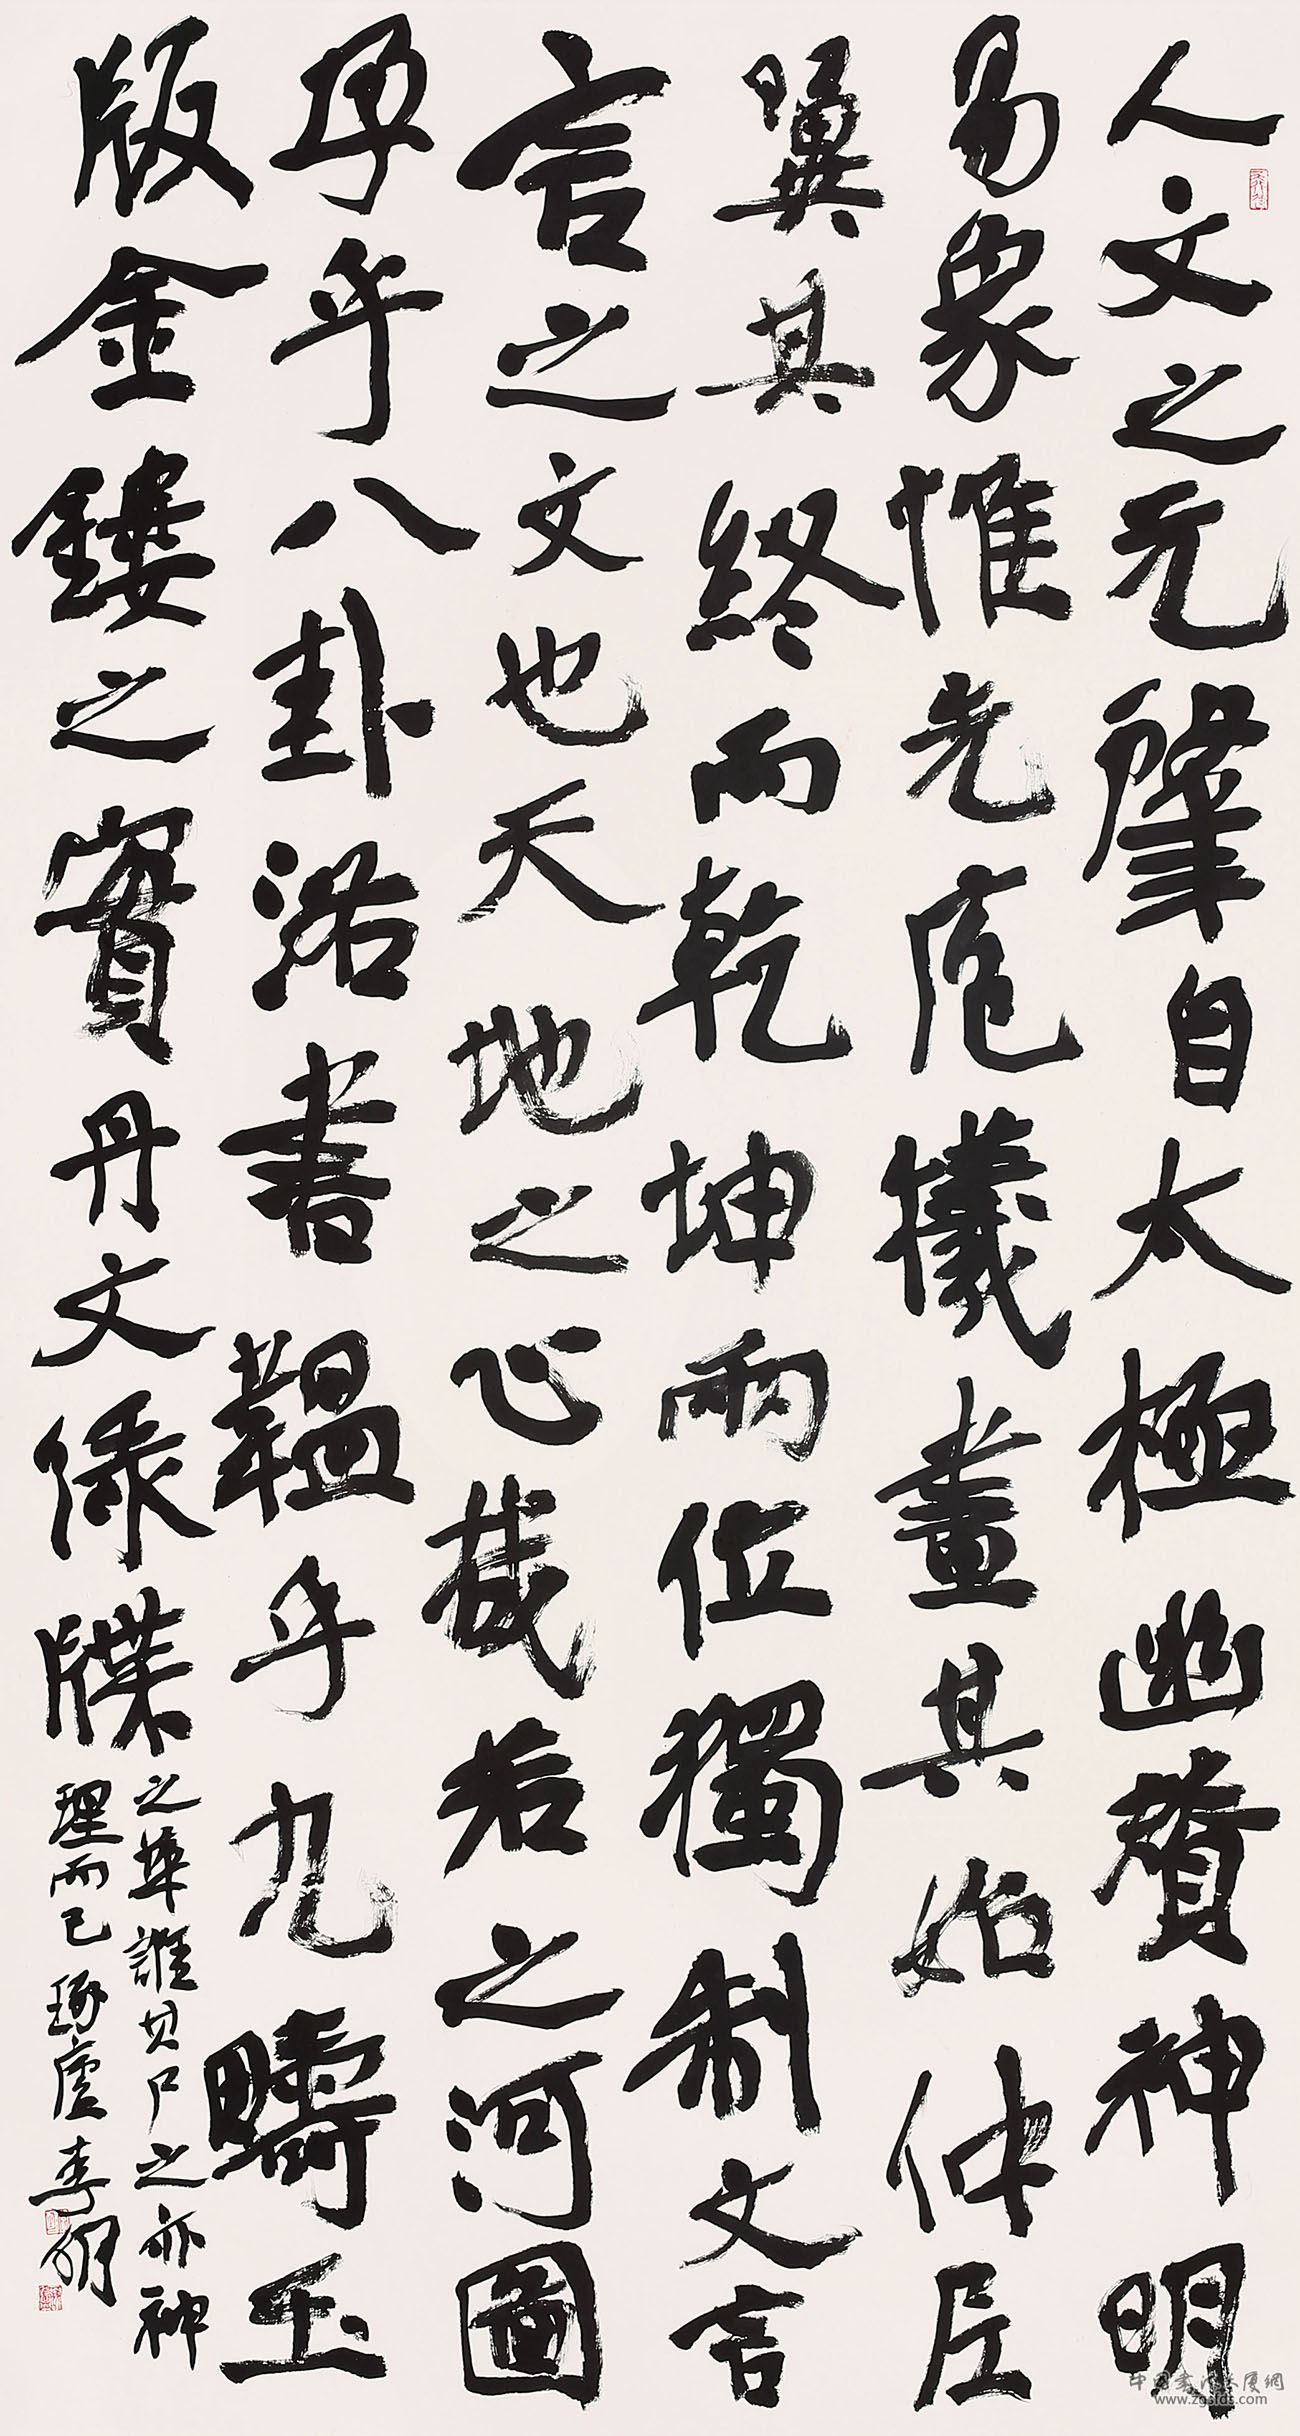 人文之元肇自太極幽贊神明
易象惟先庖犧畫其始仲尼
翼其終而乾坤兩位獨制文言
言之文也天地之心哉若之河圖
孕乎八卦洛書韞乎九疇玉
版金鏤之實丹文綠牒
之華誰其尸之亦神
理而已 琢廬李明
中国書法大厦網
www.zgsfds.com